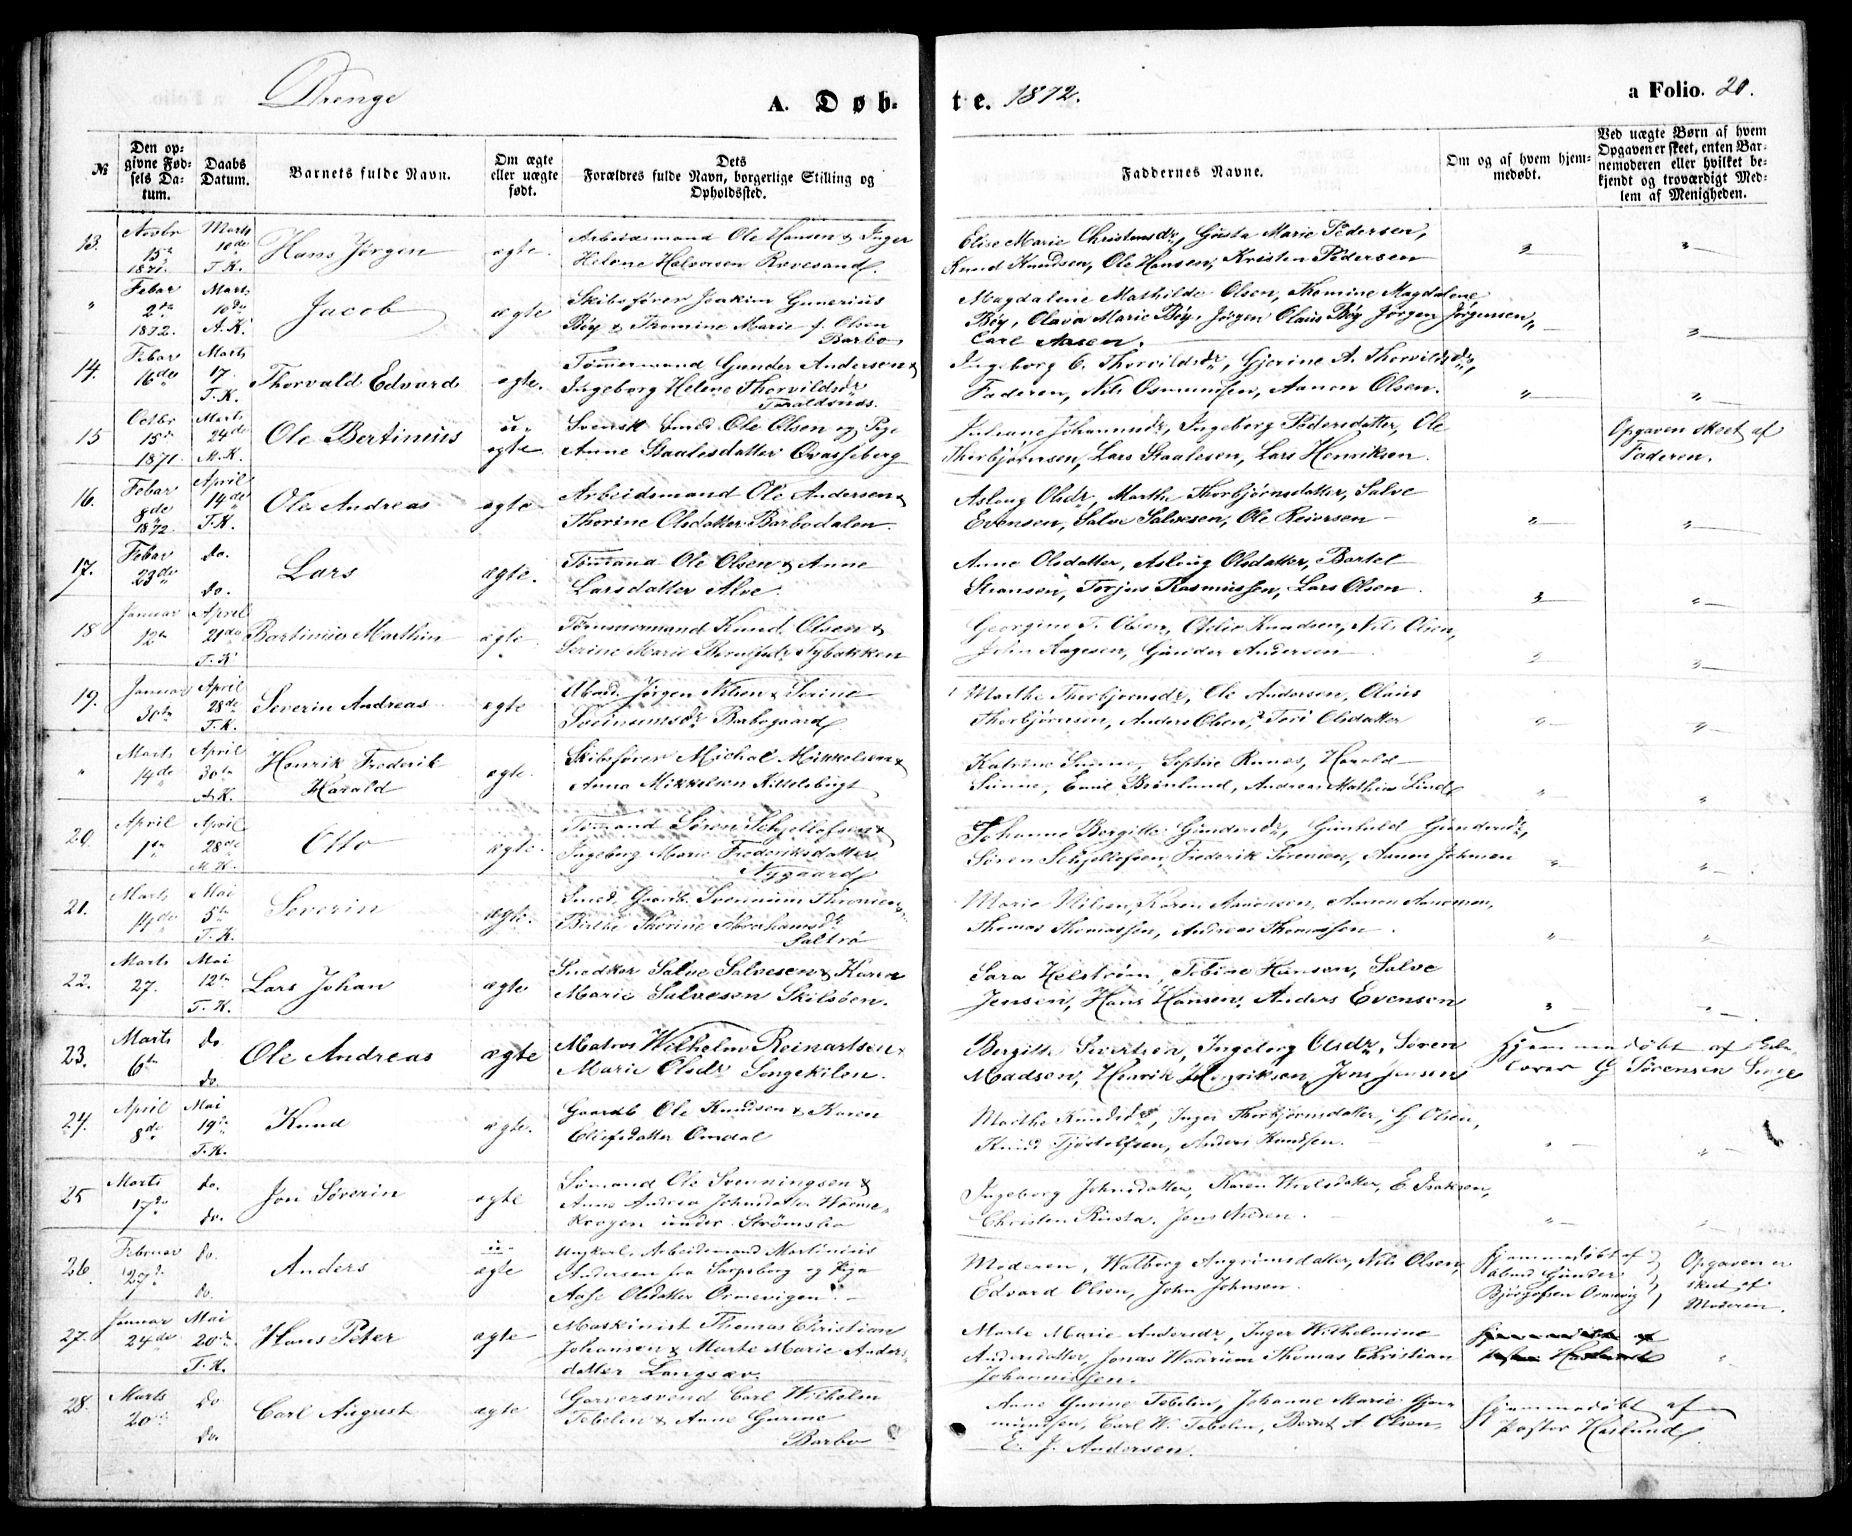 Drenge
A. Døb-
te. 1872.
a Folio. 20.
№
Den op-
givne Fød-
sels Da-
tum.
Daabs
Datum.
Barnets fulde Navn.
Om ægte
eller uægte
født.
Dets
Forældres fulde Navn, borgerlige Stilling og
Opholdssted.
Faddernes Navne.
Om og af hvem hjem-
medøbt.
Ved uægte Børn af hvem
Opgaven er skeet, enten Bar-
nemoderen eller hvilket be-
kjendt og troværdigt Med-
lem af Menigheden.
13. Novbr 15de 1871. Marts 10de T.K. Hans Jørgen ægte. Arbeidsmand Ole Hansen & Inger
Helene Halvorsen Revesand.
Elise Marie Christensdr, Gusta Marie Pedersen,
Knud Knudsen, Ole Hansen, Kristen Pedersen
" Febar 2den 1872. Marts 10de A.K. Jacob ægte Skibsfører Joakim Gunerius
Bøy & Tromine Marie f. Olsen
Barbo
Magdalene Mathilde Olsen, Thomine Magdalene
Bøy, Olava Marie Bøy, Jørgen Olaus Bøy Jørgen Jørgensen,
Carl Aasen.
14. Febar 16de Marts 17. T.K. Thorvald Edvard ægte. Tømmermand Gunder Andersen &
Ingeborg Helene Thorvildsdr
Taraldsnds.
Ingeborg C. Thorvildsdr, Gjerine A. Thorvildsdr,
Faderen, Nils Osmundsen, Aanon Olsen.
15 Octbr 15de 1871. Marts 24de M.K. Ole Bertinius u-
ægte Svensk Smed Ole Olsen og Pige
Anne Staalesdatter Qvasseberg
Juliane Johannsdr, Ingeborg Pedersdatter, Ole
Thorbjørnsen, Lars Staalesen, Lars Henriksen.
Opgaven skeet af
Faderen.
16. Febar 8de 1872. April 14de T.K. Ole Andreas ægte Arbeidsmand Ole Andersen &
Thorine Olsdatter Barbodalen.
Asloug Olsdr, Marthe Thorbjørnsdatter, Salve
Evensen, Salve Salvesen, Ole Reiersen
17. Febar 23de do. do. Lars ægte. Tømmand Ole Olsen & Anne
Larsdatter Alve.
Anne Olsdatter, Asloug Olsdatter, Bertel
Torjus Rasmussen, Lars Olsen
18 Januar 12te April 21de T.K. Bertinius Marthin ægte. Tømmermand Knud Olsen &
Serine Marie Tybakken
Georgine T. Olsen, Knudsen, Nils Olsen,
John Aagesen, Gunder Andersen
19. Januar 30te April 28de T.K. Severin Andreas ægte Jørgen Nilsen & Serine
Barbogaard.
Marthe Thorbjørnsdr, Ole Andersen, Olaus
Thorbjørnsen, Anders Olsen, Tori Olsdatter
" Marts 14de April 30te A.K. Henrik Frederik
Harald ægte Skibsfører Michal Mikkelsen &
Anna Mikkelsen Kittelsbugt
Katrine Sunne, Sophie Harald
Sunne, Emil Brønlund, Andreas Mathias Lind
20 April 1te April 28de M.K. Otto ægte. Tømmand Søren Schjellofsen &
Ingeborg Marie Frederiksdatter
Nygaard
Johanne Bergitte Gundersdr, Gunhild Gundersdr,
Søren Schjellofsen, Frederik Sørensen, Aanon Johnsen
21. Marts 14de Mai 5te T.K. Severin ægte. Smed Gaardb. Svennum
Birthe Thorine Abrahamsdr
Saltrø
Marie Nilsen, Karen Aanonsen, Aanon Aanonsen,
Thomas Thomassen, Andreas Thomassen.
22. Marts 27. Mai 12te T.K. Lars Johan ægte Snedker Salve Salvesen & Karen
Marie Salvesen Skilsøen.
Sara Helstrøm, Tobine Hansen, Salve
Jensen, Hans Hansen, Anders Evensen
23. Marts 6te do. do. Ole Andreas ægte Matros Wilhelm Reinartsen &
Marie Olsdr Songekilen.
Bergitte Sivertsen, Ingeborg Olsdr, Søren
Madsen, Henrik Henriksen, Jens Jensen
Hjemmedøbt af
G Sørensen Songe
24. April 8de Mai 19de T.K. Knud ægte. Gaardb Ole Knudsen & Karen
Olufsdatter Omdal
Marthe Knudsdr, Inger Thorbjørnsdatter, G. Olsen,
Knud Tjøstelfsen, Anders Knudsen.
25 Marts 17de do. do. Jon Søverin ægte Sømand Ole Svenningsen &
Anne Andrea Johnsdatter Warme-
krogen under Strømsbo
Ingeborg Johnsdatter, Karen Nielsdatter, E. Isaksen,
Christen Rusta, Jens
26. Februar 27de do. do. Anders u-
ægte Ungkarl, Arbeidsmand Martinius
Andersen fra Sarpsborg og Pige
Aase Olsdatter Ormevigen
Moderen, Walborg Angrimsdatter, Nils Olsen,
Edvard Olsen, John Johnsen.
Hjemmedøbt af
Gunder
Ormevig
Opgaven er
skeet af
Moderen.
27. Januar 24de Mai 20de T.K. Hans Peter ægte Maskinist Thomas Christian
Johansen & Marte Marie Anders-
datter Langsæv.
Marte Marie Andersdr, Inger Wilhelmine
Andersdatter, Jonas Waarum Thomas Christian
Johannesen.
Hjemmedøbt af
Pastor Haslund
28. Marts 20de do do. Carl August ægte Garversvend Carl Wilhelm
Tobelin & Anne Gurine
Barbo
Anne Gurine Tobelin, Johanne Marie Gjer-
mundsen, Carl W. Tobelin, Bernt A. Olsen,
E. J. Andersen.
Hjemmedøbt af
Pastor Haslund.